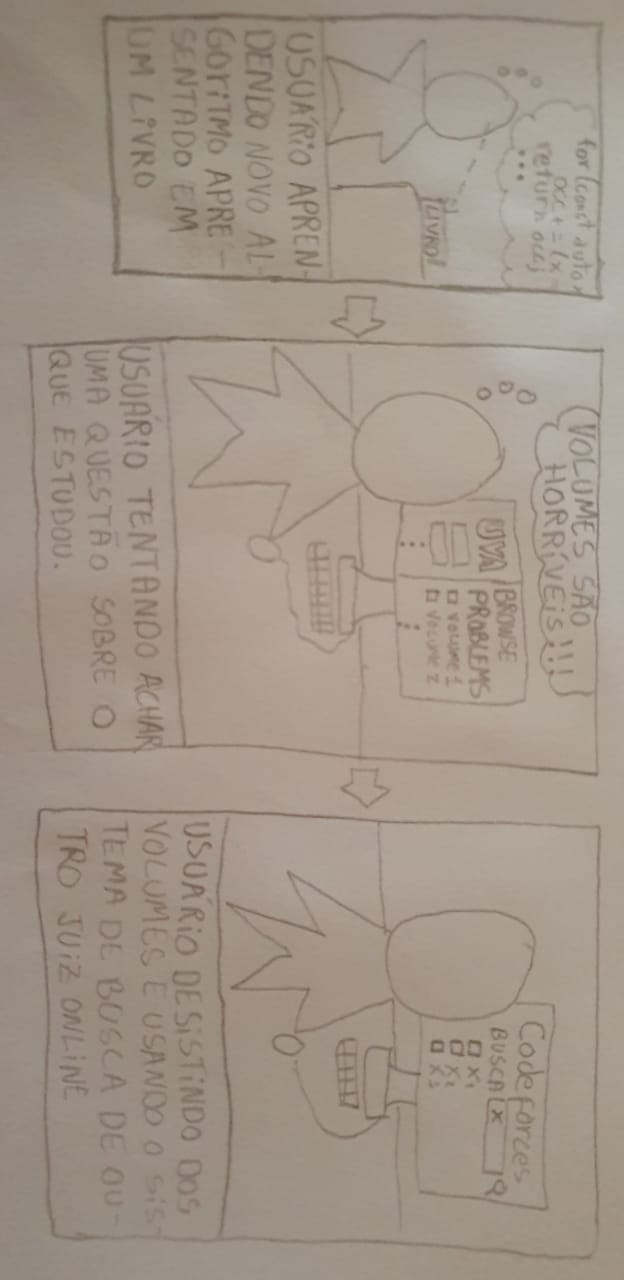 for (const auto x
acc += (x -
return acc;
...
LIVRO!
USUÁRIO APREN-
DENDO NOVO AL-
GORITMO APRE-
SENTADO EM
UM LIVRO
VOLUMES SÃO
HORRÍVEIS!!!
UVA
BROWSE
PROBLEMS
VOLUME 1
VOLUME 2
USUÁRIO TENTANDO ACHAR
UMA QUESTÃO SOBRE O
QUE ESTUDOU.
Codeforces
BUSCA X
X1
X2
X3
USUÁRIO DESISTINDO DOS
VOLUMES E USANDO O SIS-
TEMA DE BUSCA DE OU-
TRO JUIZ ONLINE